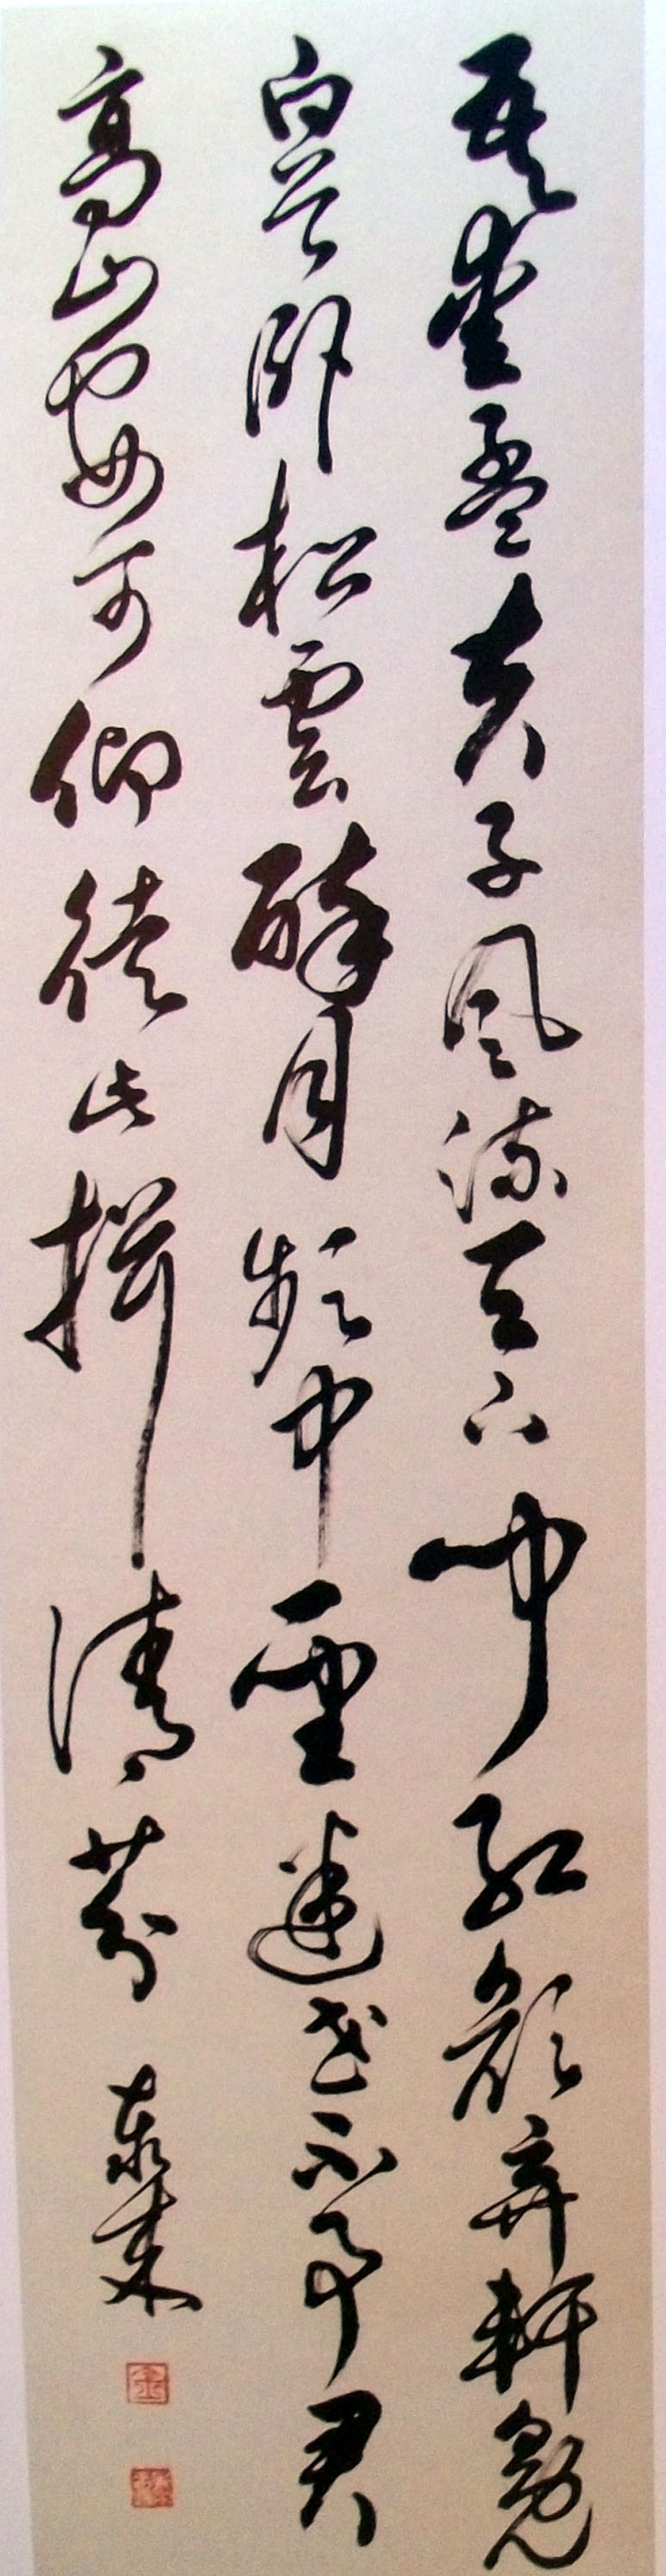 吾愛孟夫子風流天下聞紅顏棄軒冕
白首臥松雲醉月頻中聖迷花不事君
高山安可仰徒此揖清芬